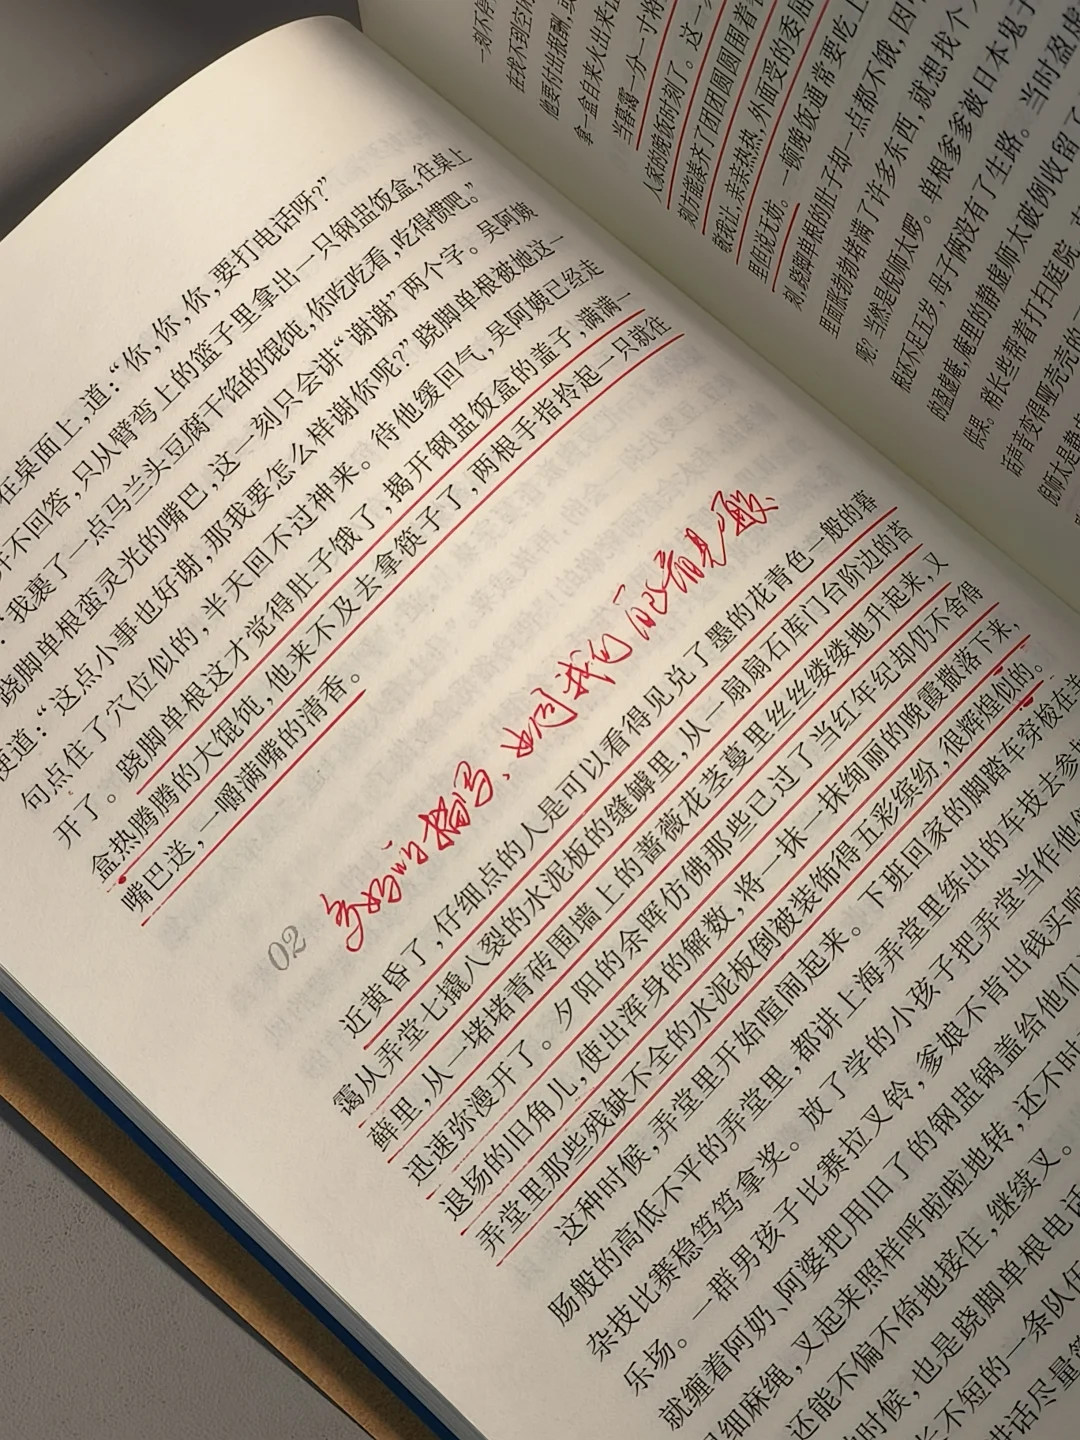 在桌面上，道：“你，你，你，要打电话呀？”
并不回答，只从臂弯上的篮子里拿出一只钢盅饭盒，往桌上
：“我裹了一点马兰头豆腐干馅的馄饨，你吃吃看，吃得惯吧。”
跷脚单根蛮灵光的嘴巴，这一刻只会讲“谢谢”两个字。吴阿姨
便道：“这点小事也好谢，那我要怎么样谢你呢？”跷脚单根被她这一
句点住了穴位似的，半天回不过神来。待他缓回气，吴阿姨已经走
开了。
跷脚单根这才觉得肚子饿了，揭开钢盅饭盒的盖子，满满一
盒热腾腾的大馄饨，他来不及去拿筷子了，两根手指拎起一只就往
嘴巴送，一嚼满嘴的清香。
多妙的描写、如同我们可以看见一般
02
近黄昏了，仔细点的人是可以看得见兑了墨的花青色一般的暮
霭从弄堂七撬八裂的水泥板的缝罅里，从一扇扇石库门台阶边的苔
藓里，从一堵堵青砖围墙上的蔷薇花茎蔓里丝丝缕缕地升起来，又
迅速弥漫开了。夕阳的余晖仿佛那些已过了当红年纪却仍不舍得
退场的旧角儿，使出浑身的解数，将一抹一抹绚丽的晚霞撒落下来，
弄堂里那些残缺不全的水泥板倒被装饰得五彩缤纷，很辉煌似的。
这种时候，弄堂里开始喧闹起来。下班回家的脚踏车穿梭在羊
肠般的高低不平的弄堂里，都讲上海弄堂里练出的车技去参
杂技比赛稳笃笃拿奖。放了学的小孩子把弄堂当作他们
乐场。一群男孩子比赛拉叉铃，爹娘不肯出钱买
就缠着阿奶、阿婆把用旧了的钢盅锅盖给他们
细麻绳，叉起来照样呼啦啦地转，还不时
还能不偏不倚地接住，继续叉。
时候，也是跷脚单根电话
长不短的一条队伍
讲话尽量
一刻不停
在找不到空
他要付出报酬，或
拿一盒自来火出来
当暮霭一分一寸将
人家的晚饭时刻了。这一
刻方能挨齐了团团圆圆围着
敬我让，亲亲热热，外面受的委屈
里怕说无妨。一顿晚饭通常要吃上
刻，跷脚单根的肚子却一点都不饿，因
里面胀勃勃堵满了许多东西，就想找个
呢？当然是倪师太啰。单根爹爹被日本鬼子
根还不足五岁，母子俩没有了生路。当时盈虚
的盈虚庵，庵里的静虚师太破例收留了
供果。稍长些帮着打扫庭院，
话声音变得哑壳壳的
倪师太是静